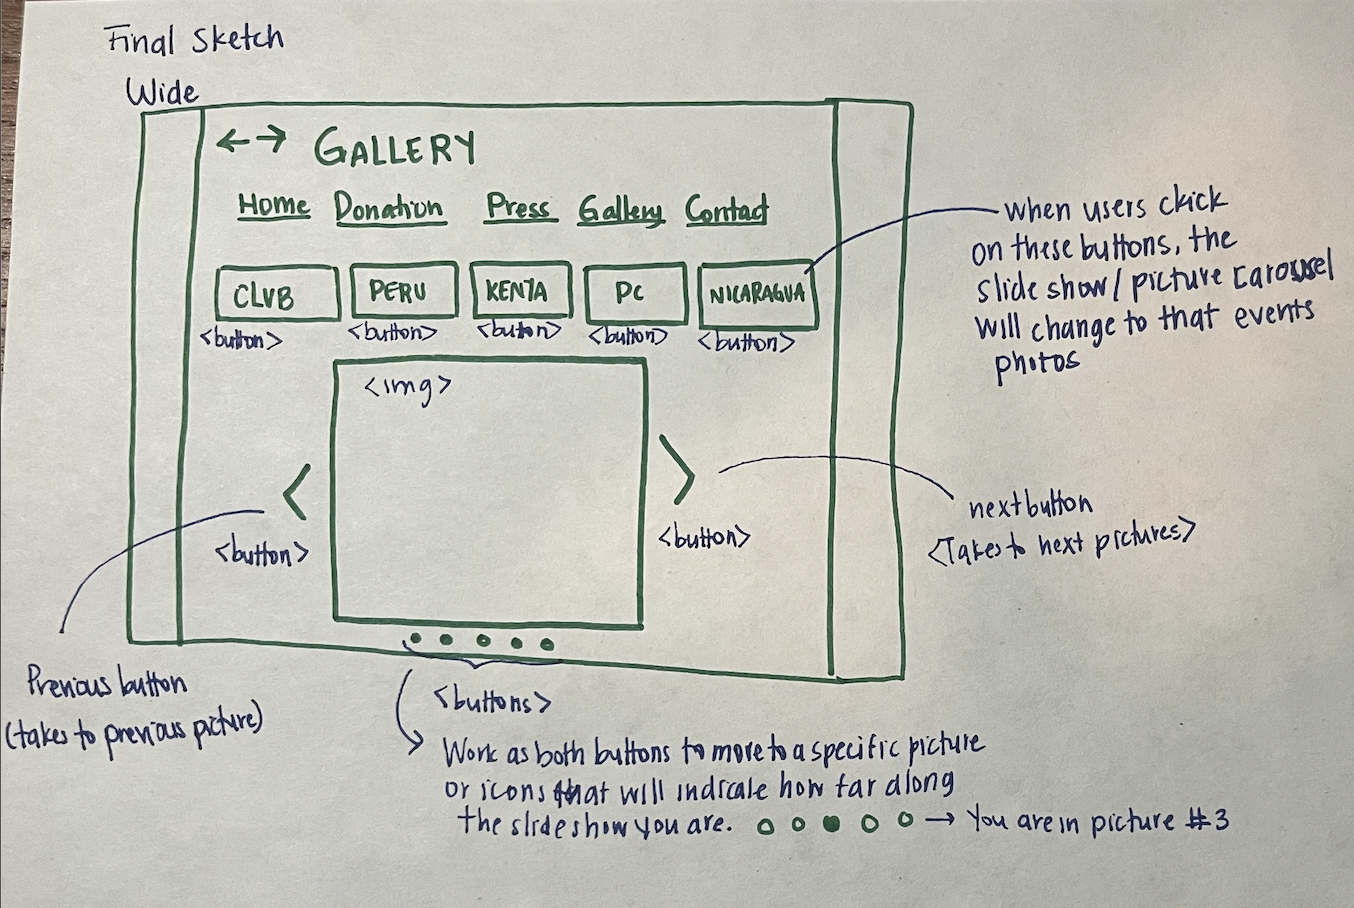 Final Sketch
Wide
←→ GALLERY
Home Donation Press Gallery Contact
CLUB PERU KENYA PC NICARAGUA
<button> <button> <button> <button> <button>
when users ckick
on these buttons, the
slide show/picture carousel
will change to that events
photos
<img>
< >
<button> <button>
next button
<Takes to next pictures>
Previous button
(takes to previous picture)
<buttons>
Work as both buttons to move to a specific picture
or icons that will indicate how far along
the slideshow you are. → You are in picture #3